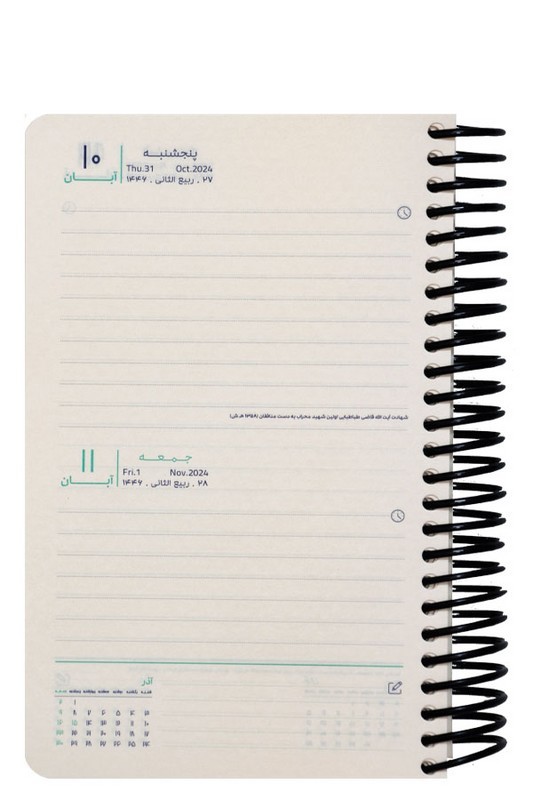 ۱۰ پنجشنبه
آبان Thu.31 Oct.2024
۲۷ . ربیع الثانی . ۱۴۴۶
شهادت آیت الله قاضی طباطبایی اولین شهید محراب به دست منافقان (۱۳۵۸ ه‍.ش)
۱۱ جمعه
آبان Fri.1 Nov.2024
۲۸ . ربیع الثانی . ۱۴۴۶
آذر